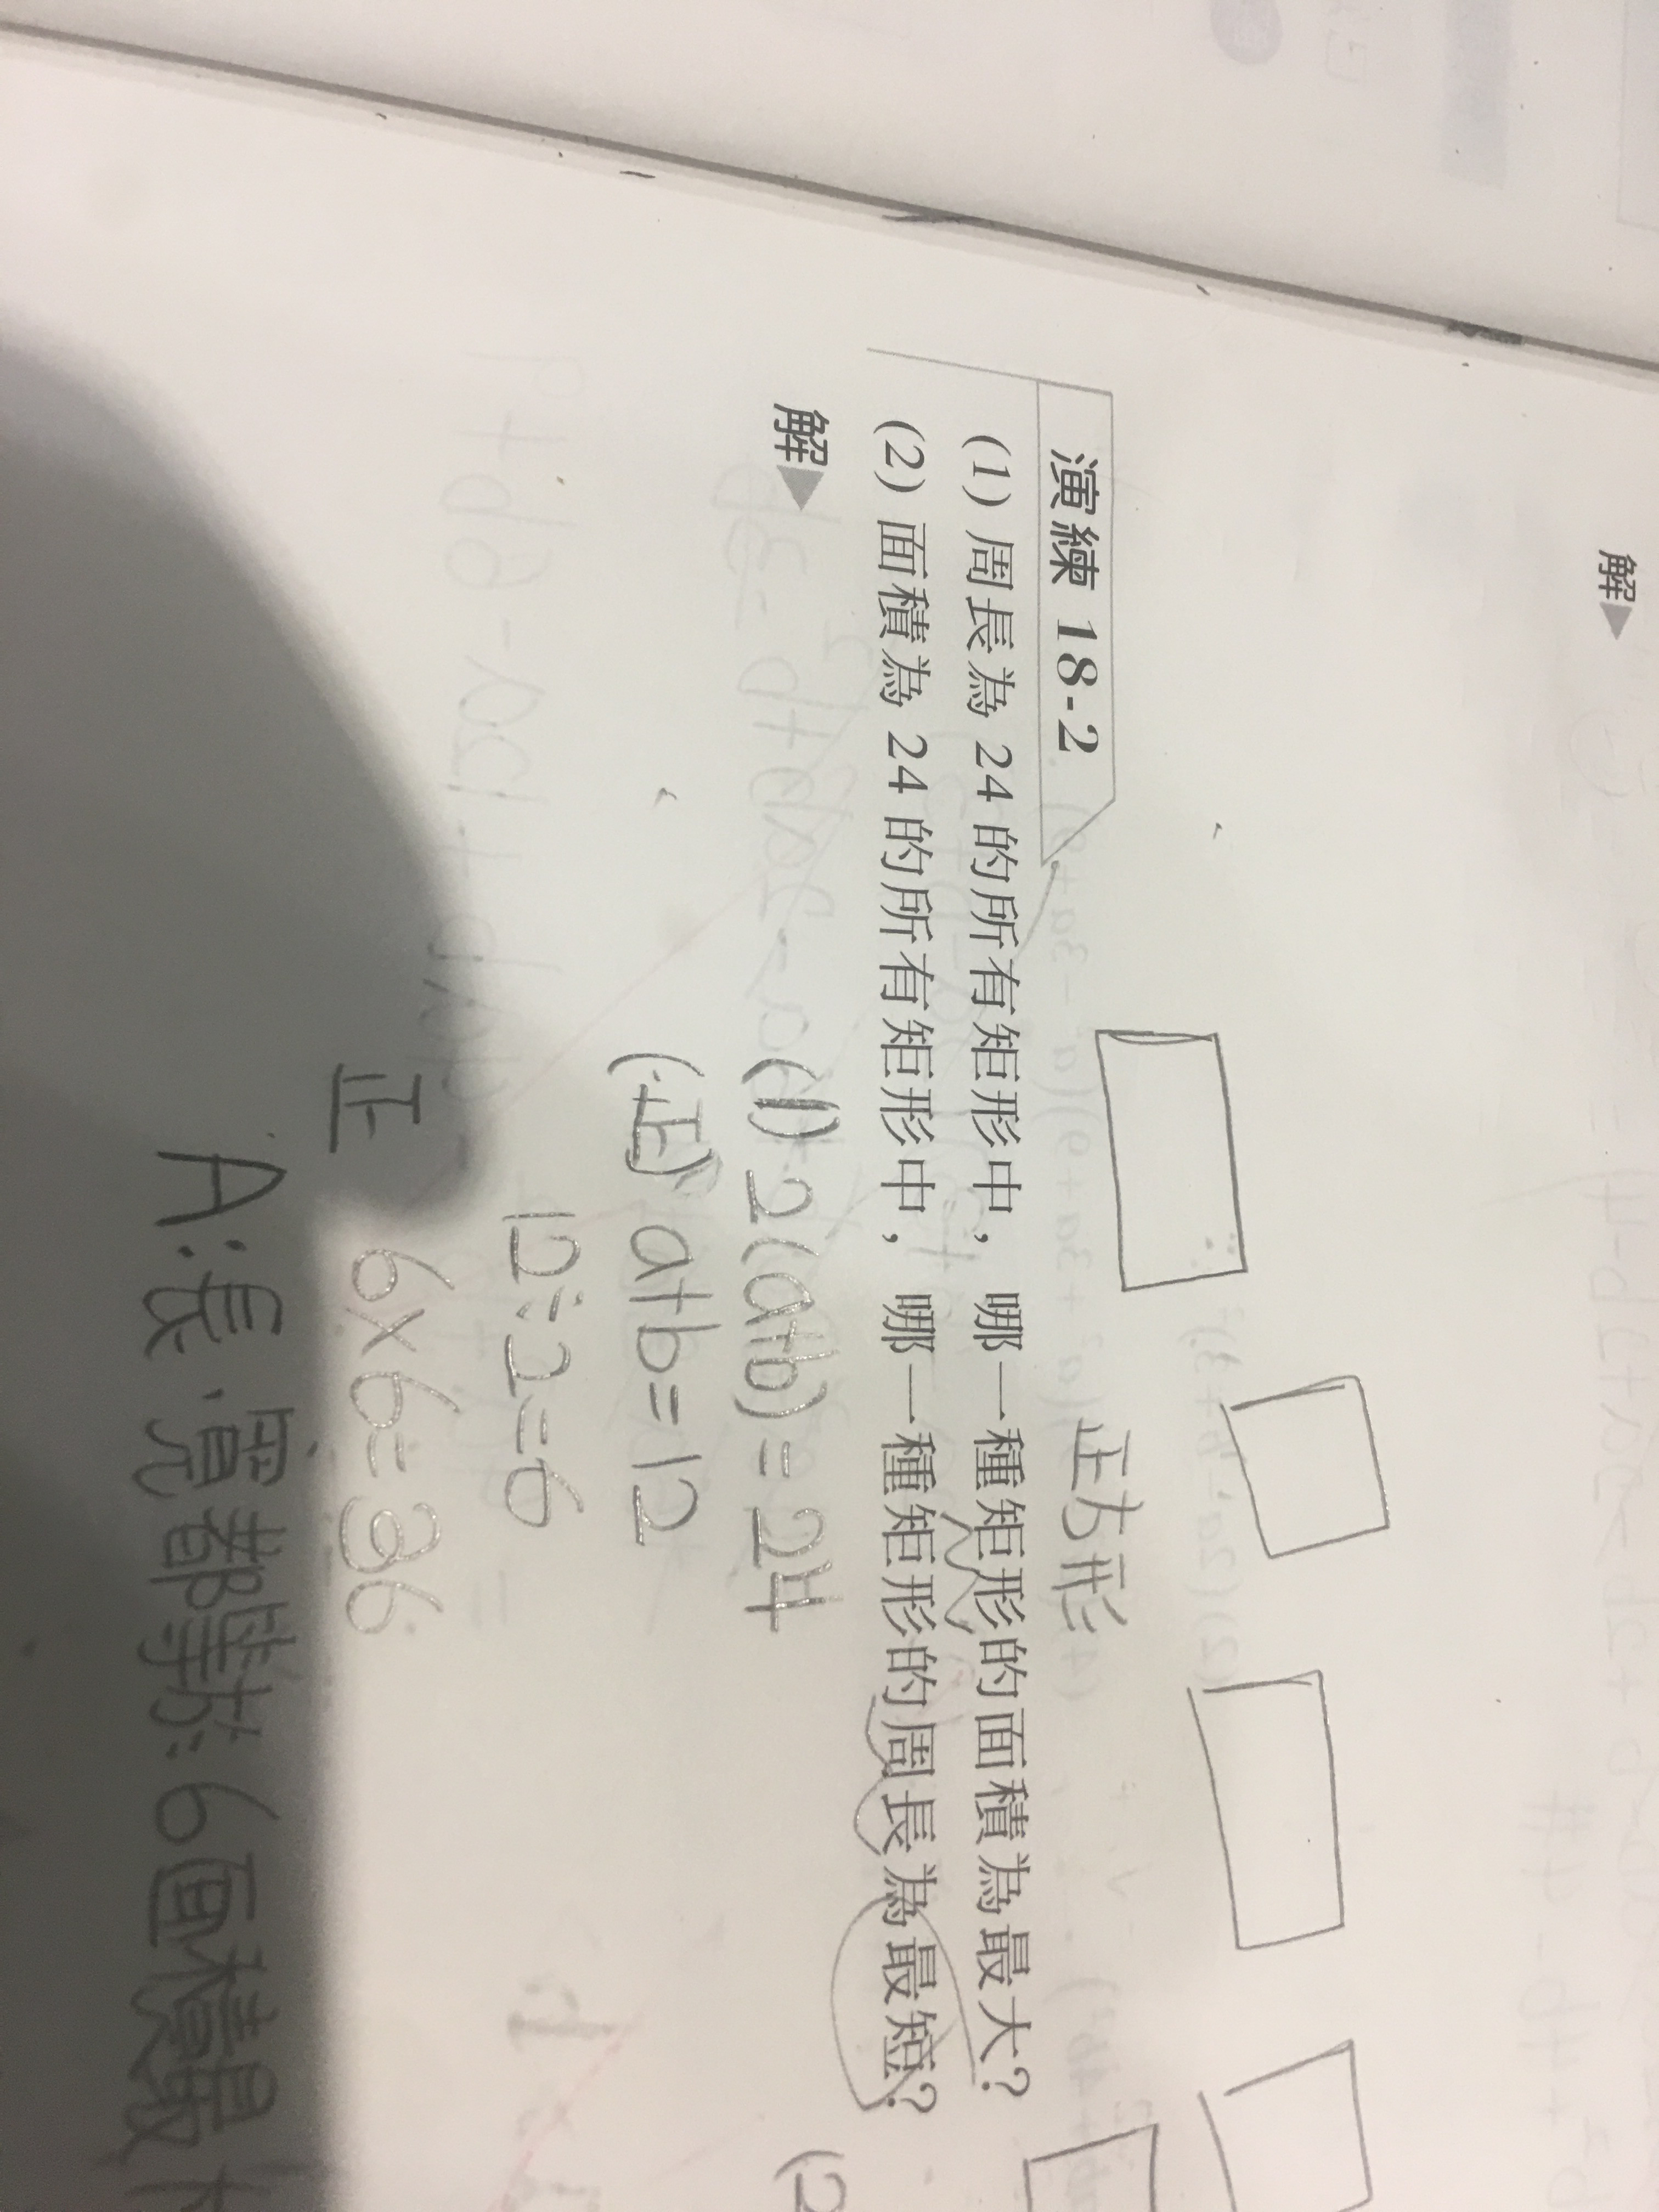 解▶
演練 18-2
正方形
(1) 周長為 24 的所有矩形中，哪一種矩形的面積為最大?
(2) 面積為 24 的所有矩形中，哪一種矩形的周長為最短?
解▶
(1) 2(a+b)=24
(正) a+b=12
12÷2=6
正 6×6=36
A:長、寬都等於6面積最
(2